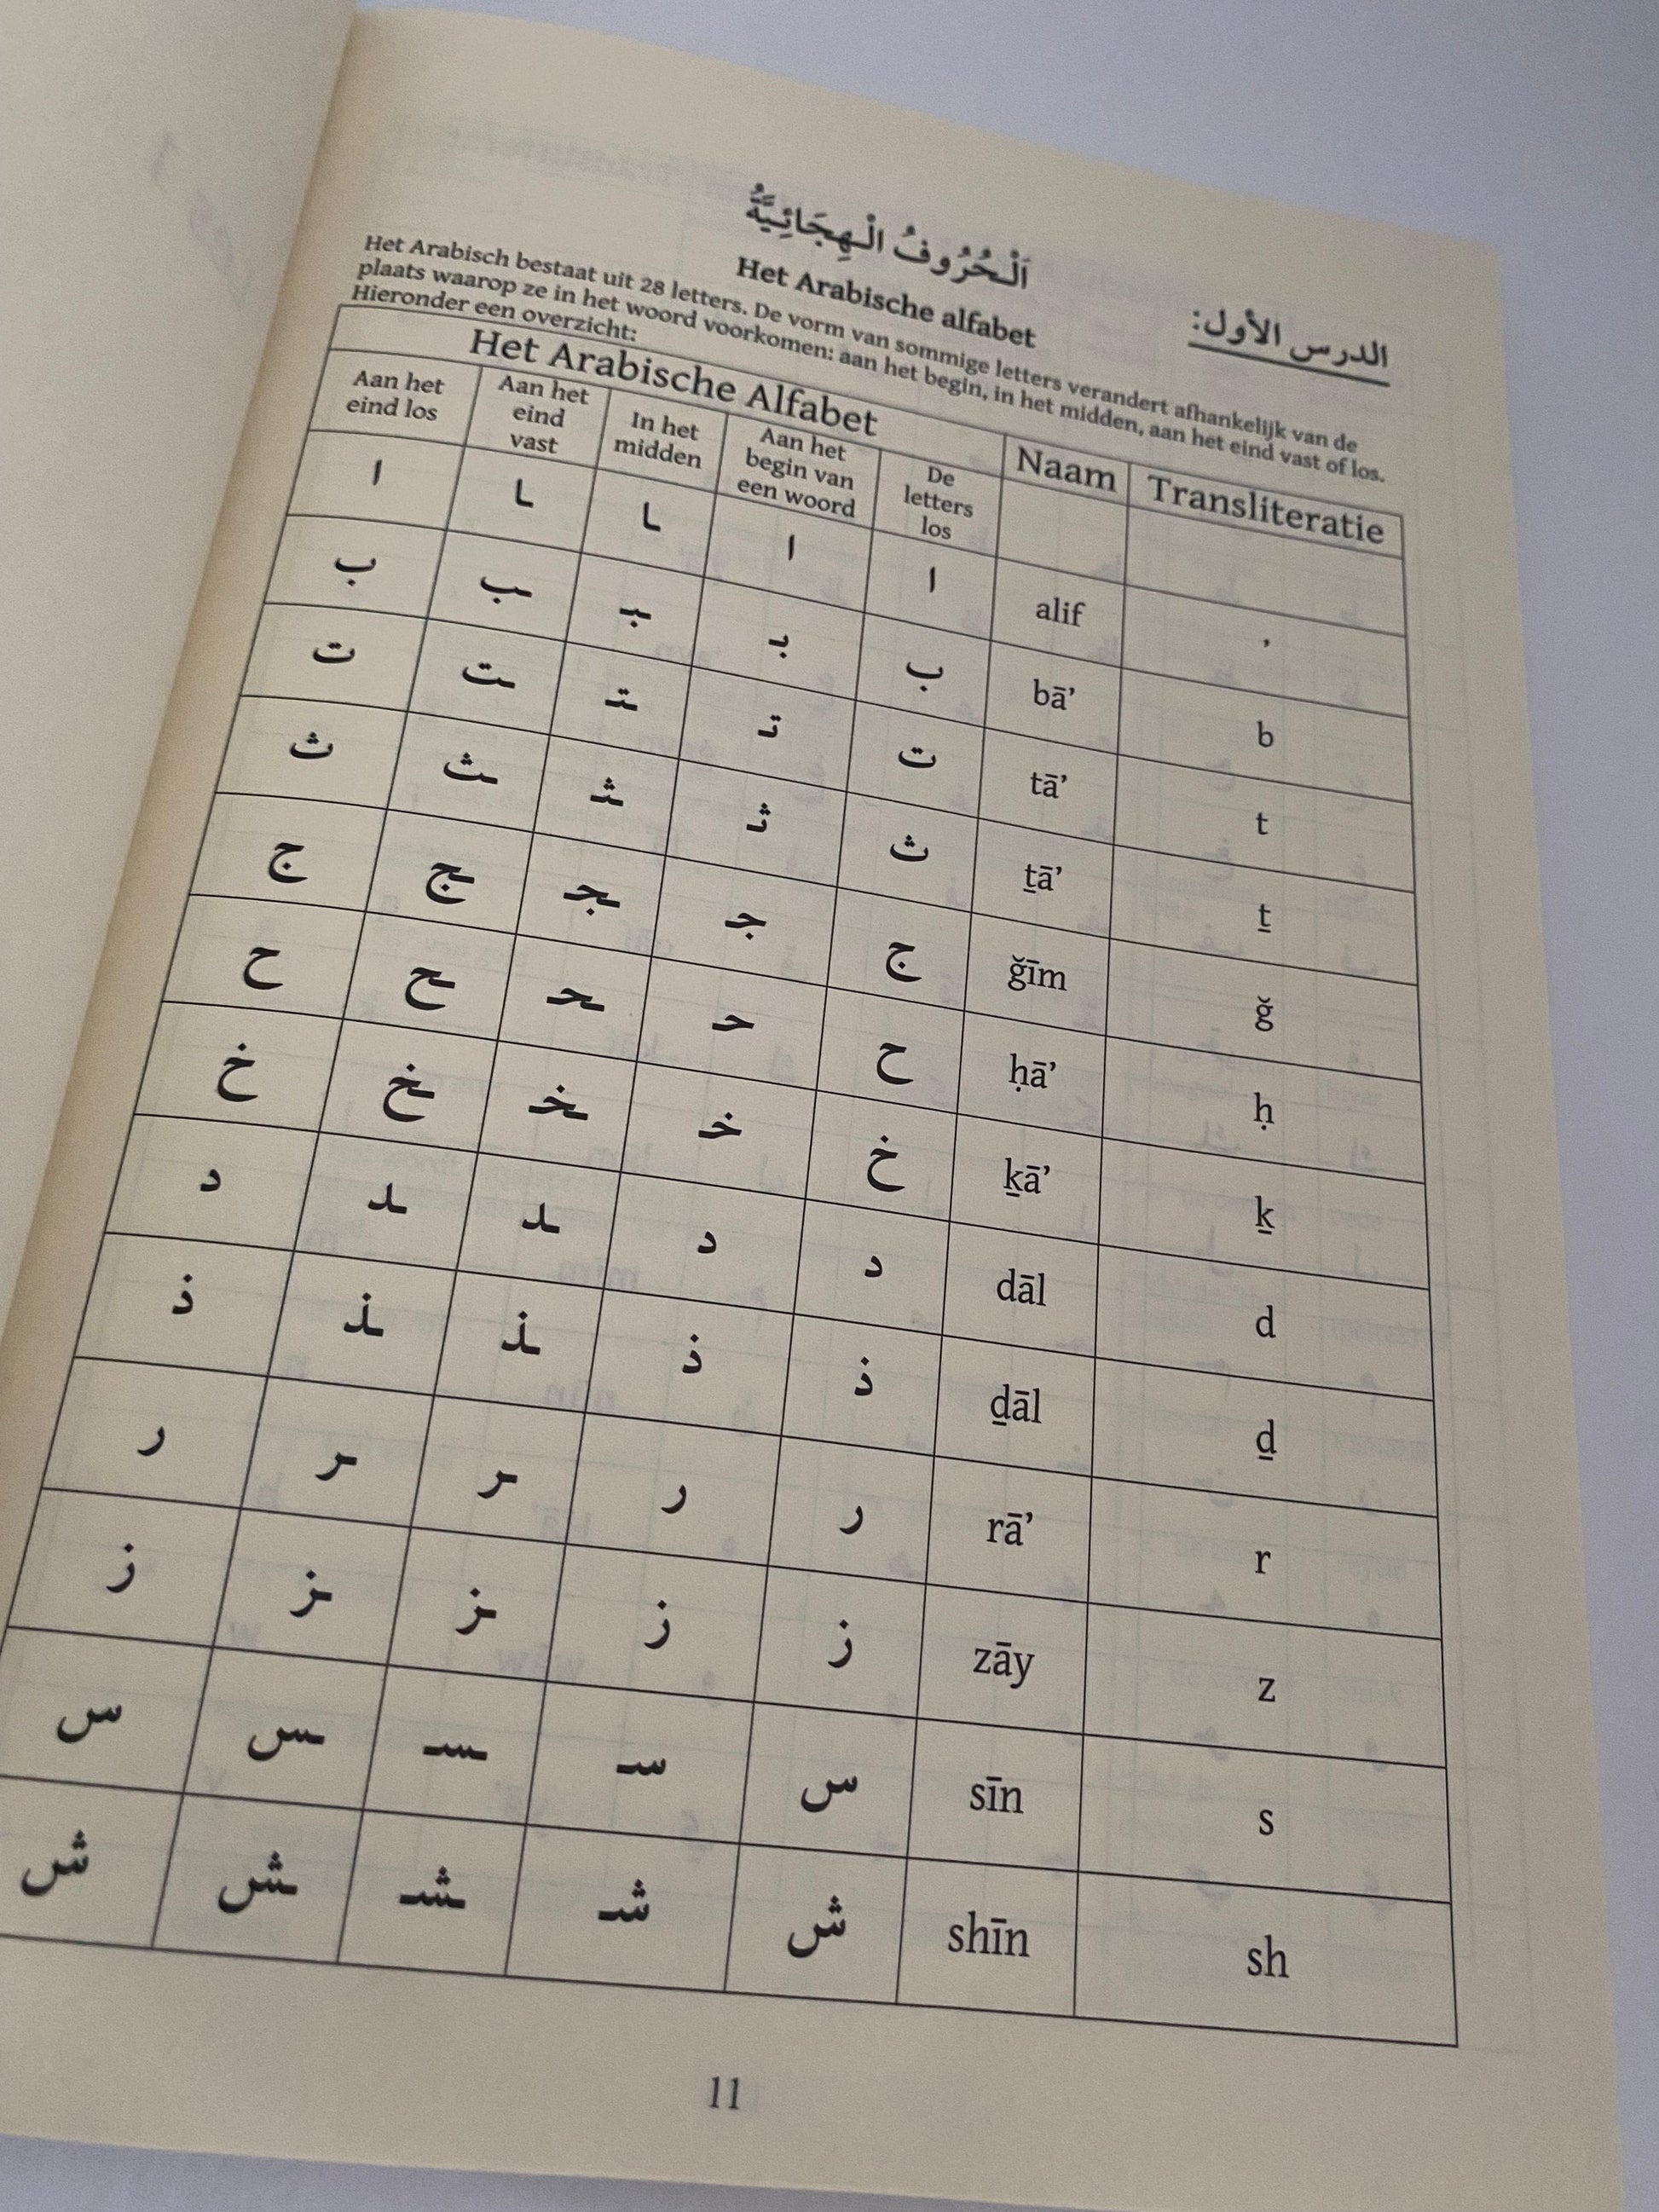 الدرس الأول:
اَلْحُرُوفُ الْهِجَائِيَّةُ
Het Arabische alfabet
Het Arabisch bestaat uit 28 letters. De vorm van sommige letters verandert afhankelijk van de
plaats waarop ze in het woord voorkomen: aan het begin, in het midden, aan het eind vast of los.
Hieronder een overzicht:
Het Arabische Alfabet Naam Transliteratie
Aan het eind los Aan het eind vast In het midden Aan het begin van een woord De letters los
ا ـا ـا ا ا alif ’
ب ـب ـبـ بـ ب bā’ b
ت ـت ـتـ تـ ت tā’ t
ث ـث ـثـ ثـ ث ṯā’ ṯ
ج ـج ـجـ جـ ج ğīm ğ
ح ـح ـحـ حـ ح ḥā’ ḥ
خ ـخ ـخـ خـ خ ḵā’ ḵ
د ـد ـد د د dāl d
ذ ـذ ـذ ذ ذ ḏāl ḏ
ر ـر ـر ر ر rā’ r
ز ـز ـز ز ز zāy z
س ـس ـسـ سـ س sīn s
ش ـش ـشـ شـ ش shīn sh
11